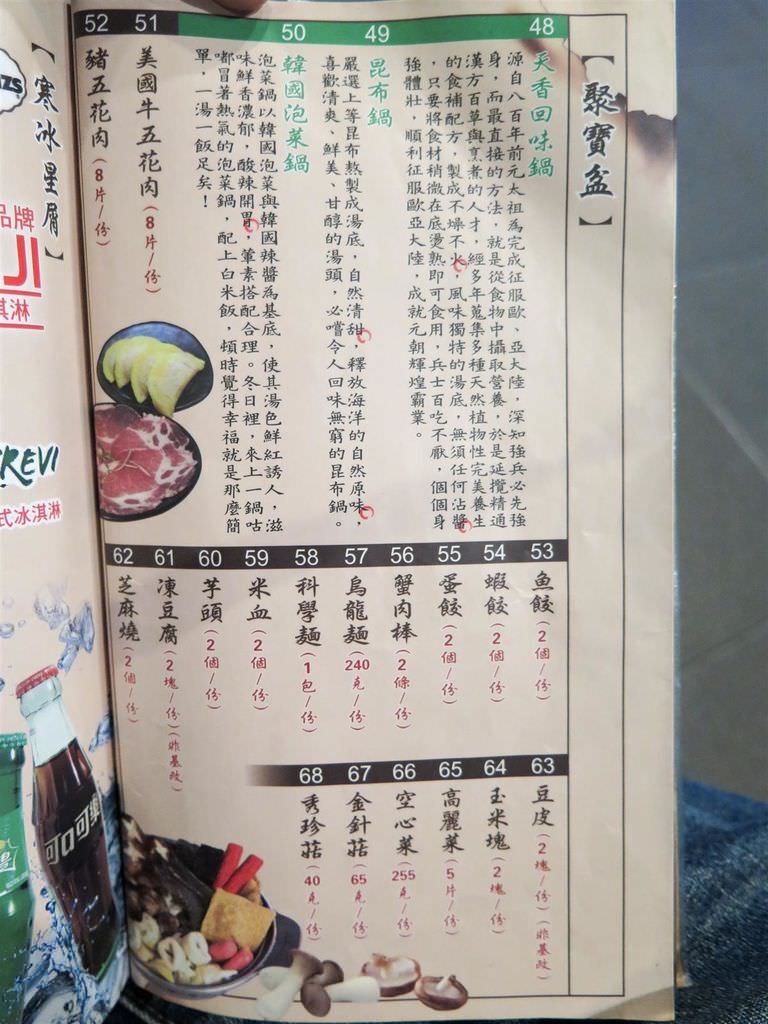 【聚寶盆】
48
天香回味鍋
源自八百年前元太祖為完成征服歐、亞大陸，深知強兵必先強
身，而最直接的方法，就是從食物中攝取營養，於是延攬精通
漢方百草與烹煮的人才，經多年蒐集多種天然植物性完美養生
的食補配方，製成不燥不火，風味獨特的湯底，無須任何沾醬
，只要將食材稍微在底燙熟即可食用，兵士百吃不厭，個個身
強體壯，順利征服歐亞大陸，成就元朝輝煌霸業。
49
昆布鍋
嚴選上等昆布熬製成湯底，自然清甜，釋放海洋的自然原味，
喜歡清爽、鮮美、甘醇的湯頭，必嚐令人回味無窮的昆布鍋。
50
韓國泡菜鍋
泡菜鍋以韓國泡菜與韓國辣醬為基底，使其湯色鮮紅誘人，滋
味鮮香濃郁，酸辣開胃，葷素搭配合理。冬日裡，來上一鍋咕
嘟冒著熱氣的泡菜鍋，配上白米飯，頓時覺得幸福就是那麼簡
單，一湯一飯足矣！
51
美國牛五花肉（8片/份）
52
豬五花肉（8片/份）
53
魚餃（2個/份）
54
蝦餃（2個/份）
55
蛋餃（2個/份）
56
蟹肉棒（2條/份）
57
烏龍麵（240克/份）
58
科學麵（1包/份）
59
米血（2個/份）
60
芋頭（2個/份）
61
凍豆腐（2塊/份）（非基改）
62
芝麻燒（2個/份）
63
豆皮（2塊/份）（非基改）
64
玉米塊（2塊/份）
65
高麗菜（5片/份）
66
空心菜（255克/份）
67
金針菇（65克/份）
68
秀珍菇（40克/份）
【寒冰星屑】
品牌
JI
淇淋
REVI
式冰淇淋
可口可樂